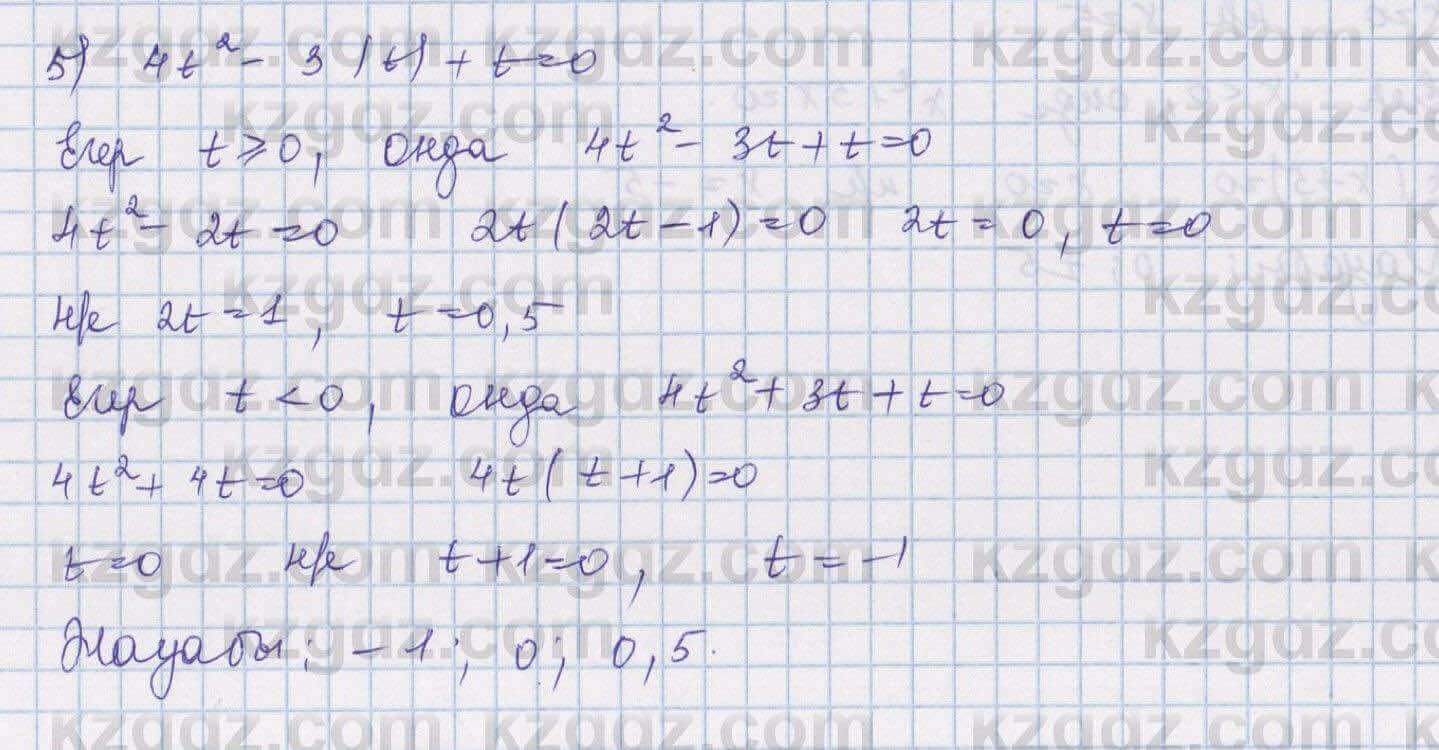 5) 4t² - 3|t| + t = 0
Егер t ⩾ 0, онда 4t² - 3t + t = 0
4t² - 2t = 0 2t(2t - 1) = 0 2t = 0, t = 0
н/е 2t = 1, t = 0,5
Егер t < 0, онда 4t² + 3t + t = 0
4t² + 4t = 0 4t(t + 1) = 0
t = 0 н/е t + 1 = 0, t = -1
Жауабы: -1; 0; 0,5.
kzgdz.com